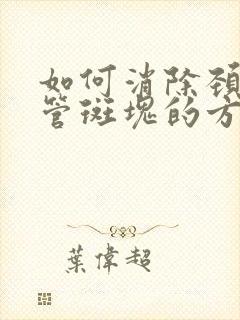 如何消除頚
管斑塊的方
葉偉超